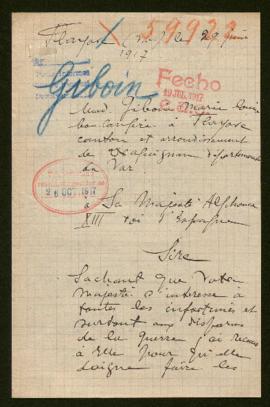 59933
Flayosc (Var) le 29 Juin
1917
Giboin
Fecho
19 JUL. 1917
Mad. Giboin Marie Louise
à Flayosc
canton et arrondissement
de Draguignan département
du Var
26 OCT. 1917
à Sa Majesté Alphonse
XIII roi d'Espagne
Sire
Sachant que votre
majesté s'intéresse à
toutes les infortunes et
surtout aux disparus
de la guerre j'ai recours
à Elle pour qu'elle
daigne faire les